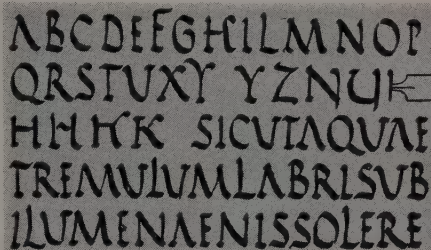 ABCDEFGHILMNOP
QRSTUXY YZNU
HHHK SICUTAQUAE
TREMULUMLABRISUB
ILUMENAENISSOLERE